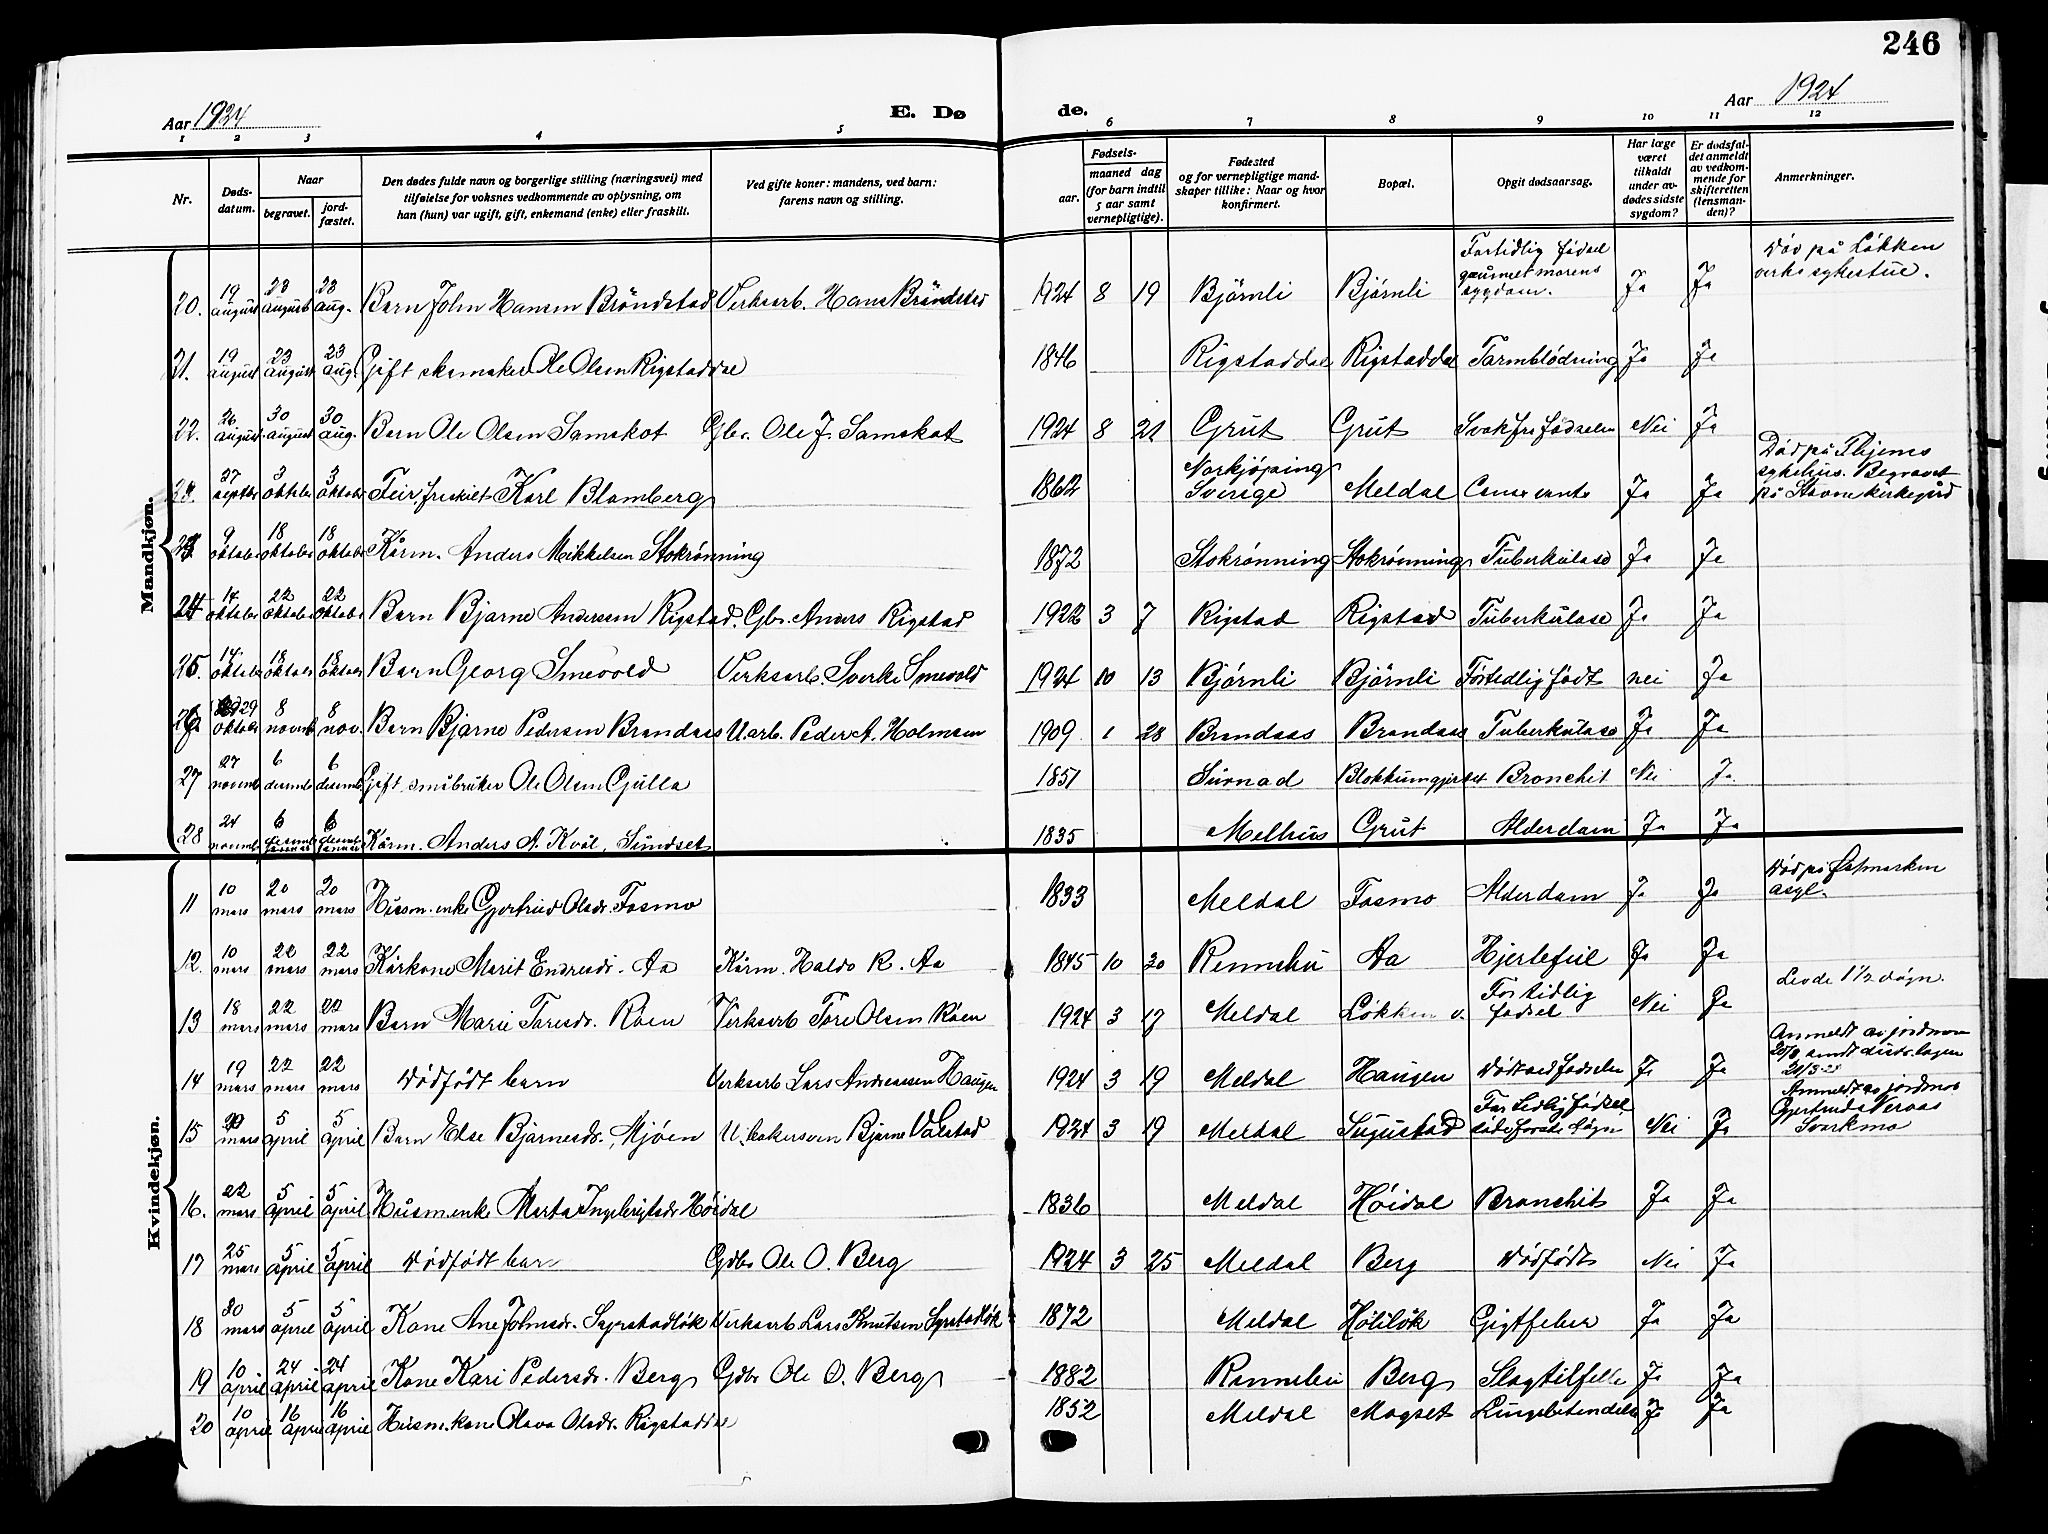 246
Aar 1924
E. Dø
de.
Aar 1924
1 2 3 4 5 6 7 8 9 10 11 12
Nr.
Døds-
datum.
Naar
begravet.
jord-
fæstet.
Den dødes fulde navn og borgerlige stilling (næringsvei) med
tilføielse for voksnes vedkommende av oplysning, om
han (hun) var ugift, gift, enkemand (enke) eller fraskilt.
Ved gifte koner: mandens, ved barn:
farens navn og stilling.
Fødsels-
aar.
maaned dag
(for barn indtil
5 aar samt
vernepligtige).
Fødested
og for vernepligtige mand-
skaper tillike: Naar og hvor
konfirmert.
Bopæl.
Opgit dødsaarsag.
Har læge
været
tilkaldt
under av-
dødes sidste
sygdom?
Er dødsfal-
det anmeldt
av vedkom-
mende for
skifteretten
(lensman-
den)?
Anmerkninger.
Mandkjøn.
20. 19 august 23 august 23 aug. Barn John Hansen Bröndstad Verksarb. Hans Bröndstad 1924 8 19 Björnli Björnli Fortidlig födsel grunnet morens sygdom. Ja Ja Död på Løkken verks sykestue.
21. 19 august 23 august 23 aug. Gift skomaker Ole Olsen Rigstaddal 1846 Rigstaddal Rigstaddal Tarmblödning Ja Ja
22. 26 august 30 august 30 aug. Barn Ole Olsen Samskot Gbr. Ole J. Samskot 1924 8 21 Grut Grut Svak fra fødselen Nei Ja
23. 27 septbr 3 oktober 3 oktober Feier fraskilt Karl Blomberg 1862 Norkjøping Sverige Meldal Ja Ja Död på Thjems sykehus. Begravet på Stavne kirkegård
9 oktober 18 oktober 18 oktober Kårm. Anders Mikkelsen Stokrönning 1872 Stokrönning Stokrönning Tuberkulose Ja Ja
24 14 oktober 22 oktober 22 oktober Barn Bjarne Andersen Rigstad. Gbr. Anders Rigstad 1922 3 7 Rigstad Rigstad Tuberkulose Ja Ja
25 14 oktober 18 oktober 18 oktober Barn Georg Smevold Verksarb. Sverke Smevold 1924 10 13 Björnli Björnli Fortidlig født nei Ja
26 29 oktober 8 novemb 8 nov. Barn Bjarne Pedersen Brandaas U.arb. Peder A. Holmsen 1909 1 28 Brandaas Brandaas Tuberkulose Ja Ja
27 27 novemb 6 desemb 6 desemb Gift småbruker Ole Olsen Gjulla 1851 Surnad Blokkumgjerdet Bronchit Nei Ja.
28 24 novemb 6 desemb 6 desemb Kårm. Anders A. Kvål, Sundset 1835 Melhus Grut Alderdom Ja Ja
Kvindekjøn.
11 10 mars 20 mars 20 mars Husm.enke Gjertrud Olsdr. Fosmo 1833 Meldal Fosmo Alderdom Ja Ja Död på Østmarken asyl.
12. 10 mars 22 mars 22 mars Kårkone Marit Endresdr. Aa Kårm. Haldo R. Aa 1845 10 20 Rennebu Aa Hjertefeil Ja Ja
13 18 mars 22 mars 22 mars Barn Marie Toresdr. Röen Verksarb Tore Olsen Röen 1924 3 17 Meldal Løkken v. For tidlig fødsel Nei Ja Levde 1 1/2 døgn.
14 19 mars 22 mars 22 mars Dödfödt barn Verksarb Lars Andreassen Haugen 1924 3 19 Meldal Haugen Död ved fødselen Ja Ja Anmeldt av jordmor sendt distr.lægen 21/3-25
15 mars 5 april 5 april Barn Else Bjarnesdr. Mjöen Bjarne Volstad 1924 3 19 Meldal For tidlig födsel Nei Ja Anmeldt av jordmor Gjertrud Svorkmo
16. 22 mars 5 april 5 april Husm.enke Marta Ingebrigtsdr Höidal 1836 Meldal Höidal Bronchit Ja Ja
17 25 mars 5 april 5 april Dödfödt barn Gdbr Ole O. Berg 1924 3 25 Meldal Berg Dödfödt Nei Ja
18 30 mars 5 april 5 april Kone Ane Johnsdr. Syrstadløk Verksarb Lars Knutsen Syrstadløk 1872 Meldal Höliløk Gigtfeber Ja Ja
19 10 april 24 april 24 april Kone Kari Pedersdr. Berg Gdbr Ole O. Berg 1882 Rennebu Berg Slagtilfelle Ja Ja
20 10 april 16 april 16 april Husm.kone Olava Olsdr. Rigstaddal 1852 Meldal Mogset Lungebetendelse Ja Ja